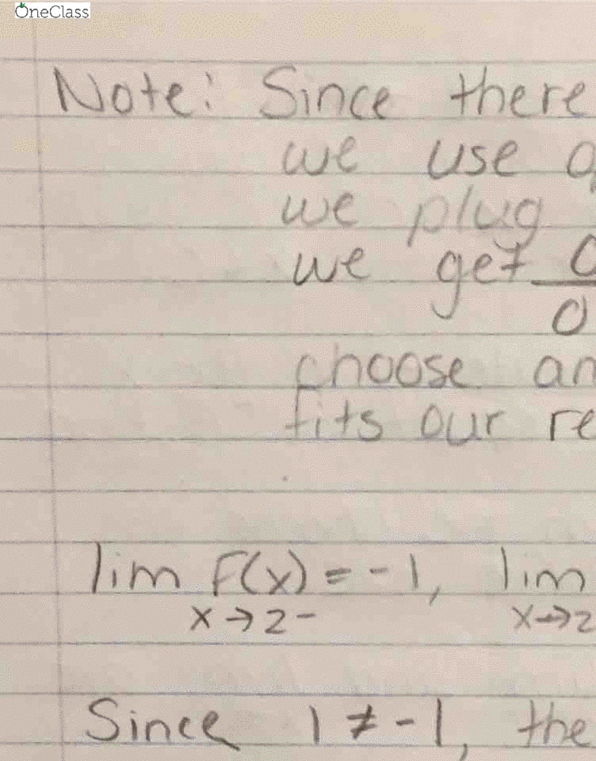 OneClass
Note: Since there
we use
we plug
we get 0
0
choose an
fits our re
lim F(x) = -1, lim
x→2- x→2
Since 1 ≠ -1, the